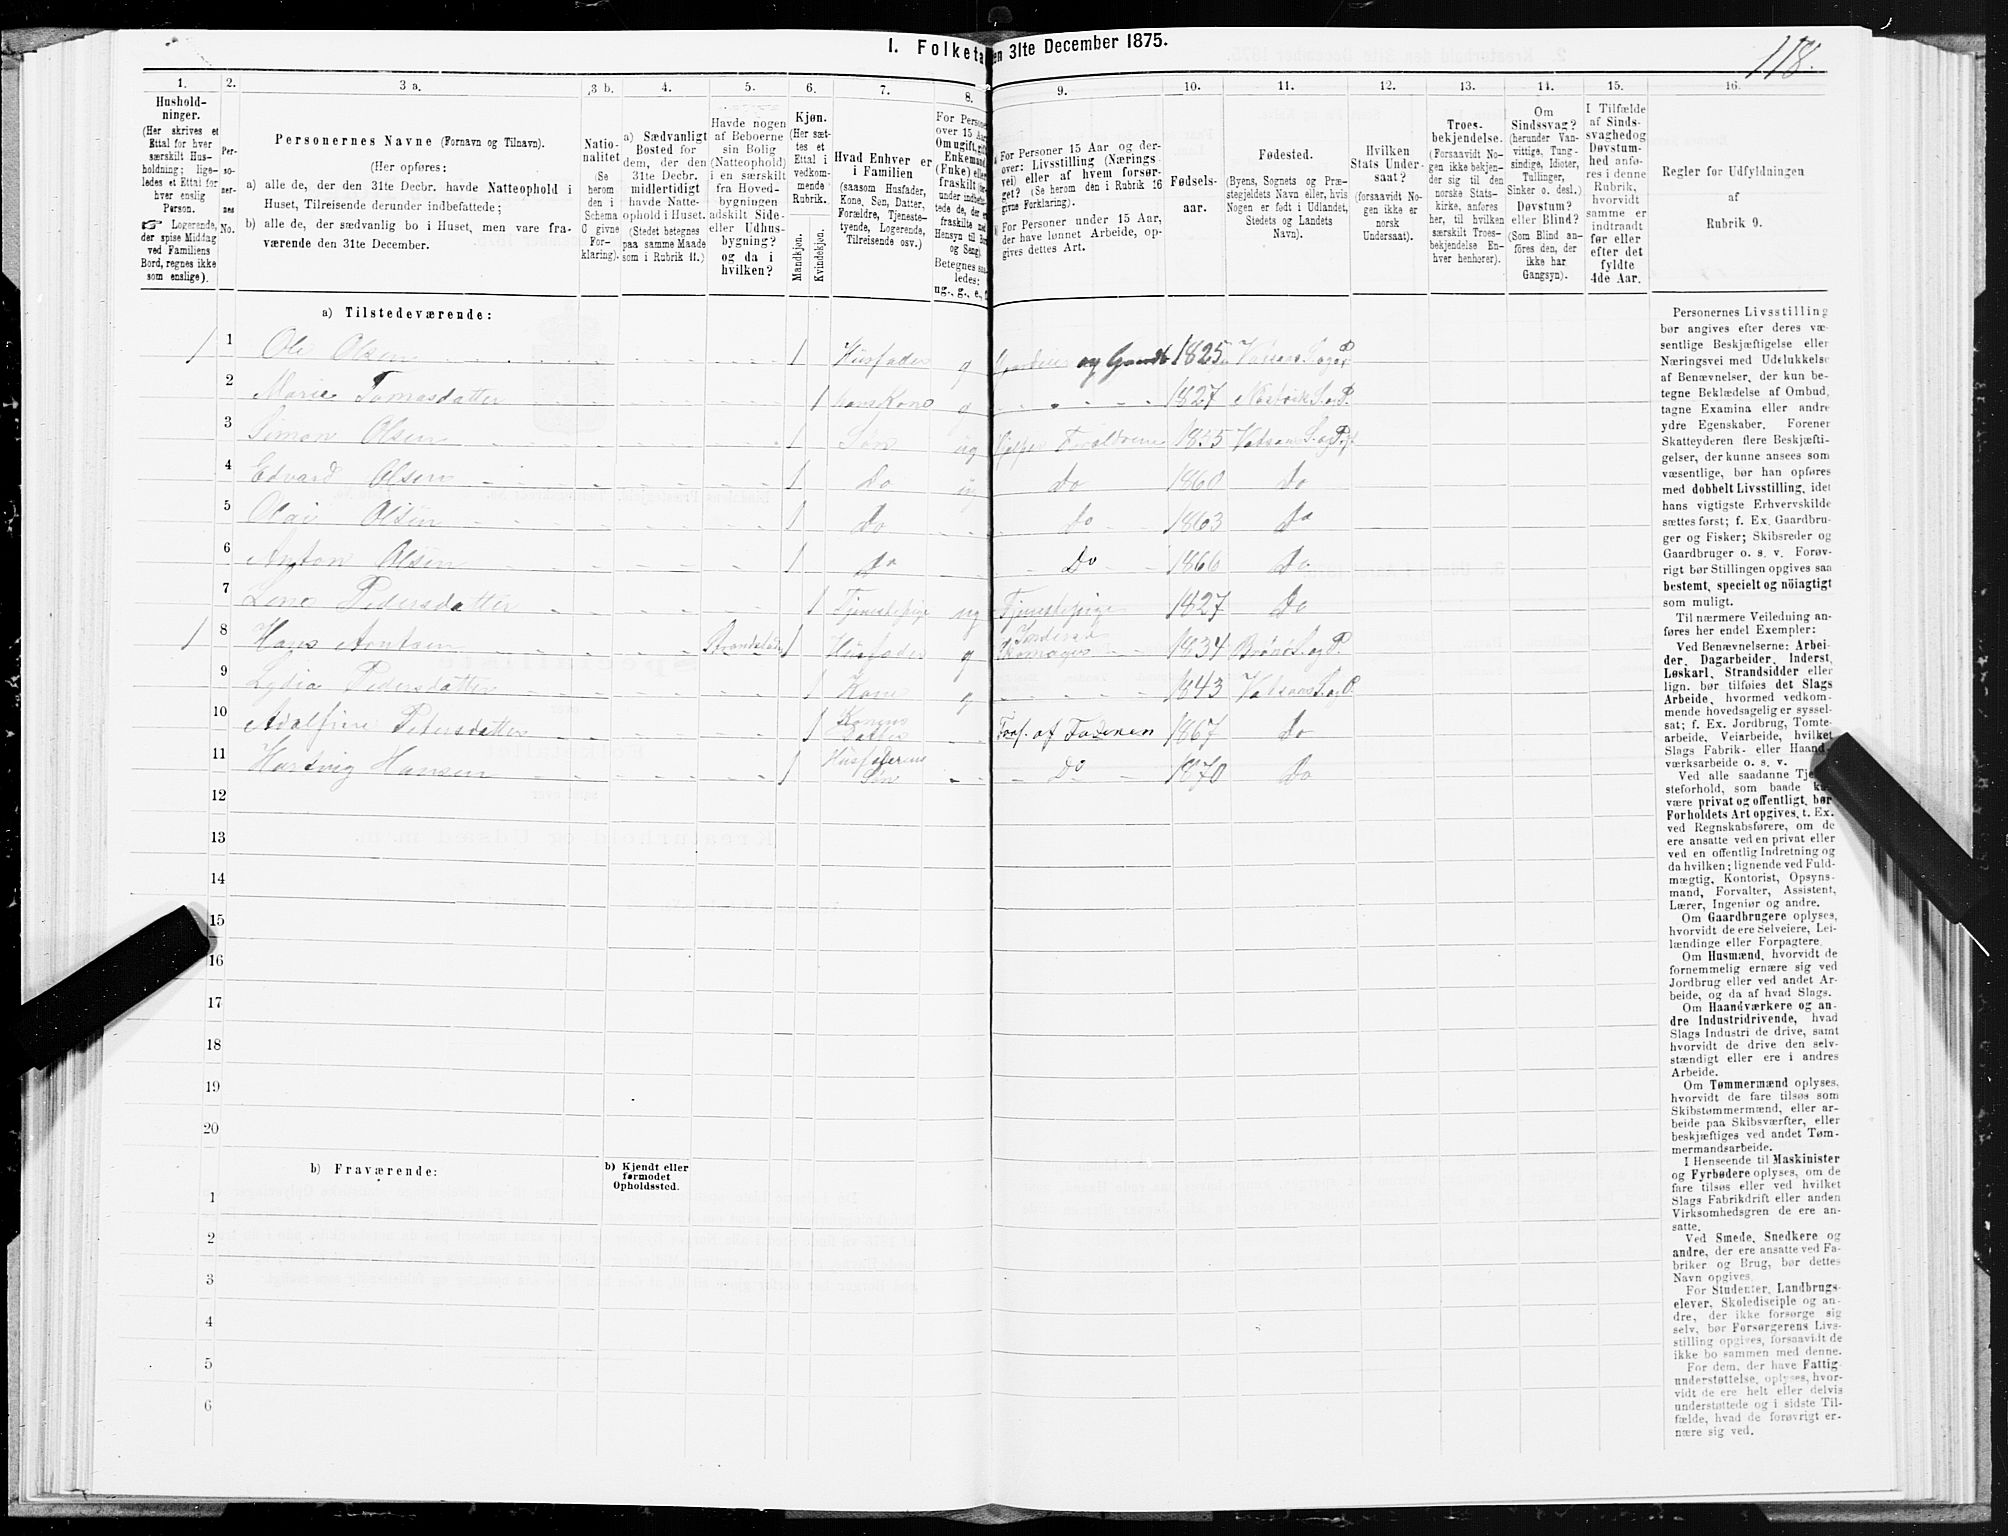 I. Folketa en 31te December 1875.
118.
1. 2. 3 a. 3 b. 4. 5. 6. 7. 8. 9. 10. 11. 12. 13. 14. 15. 16.
Hushold-
ninger.
(Her skrives et
Ettal for hver
særskilt Hus-
holdning; lige-
ledes et Ettal for
hver enslig
Person.
☞ Logerende,
der spise Middag
ved Familiens
Bord, regnes ikke
som enslige).
Per-
so-
ner-
nes
No.
Personernes Navne (Fornavn og Tilnavn).
(Her opføres:
a) alle de, der den 31te Decbr. havde Natteophold i
Huset, Tilreisende derunder indbefattede;
b) alle de, der sædvanlig bo i Huset, men vare fra-
værende den 31te December.
Natio-
nalitet
(Se
herom
den i
Schema
C givne
For-
klaring).
a) Sædvanligt
Bosted for
dem, der den
31te Decbr.
midlertidigt
havde Natte-
ophold i Huset.
(Stedet betegnes
paa samme Maade
som i Rubrik 11.)
Havde nogen
af Beboerne
sin Bolig
(Natteophold)
i en særskilt
fra Hoved-
bygningen
adskilt Side-
eller Udhus-
bygning?
og da i
hvilken?
Kjøn.
(Her sæt-
tes et
Ettal i
vedkom-
mende
Rubrik.
Mandkjøn.
Kvindekjøn.
Hvad Enhver er
i Familien
(saasom Husfader,
Kone, Søn, Datter,
Forældre, Tjeneste-
tyende, Logerende,
Tilreisende osv.)
For Persone
over 15 Aar
Om ugift, gift
Enkemand
(Enke) eller
fraskilt
Hensyn til
og Seng)
Betegnes saa-
ledes:
ug., g., e.,
For Personer 15 Aar og der-
over: Livsstilling (Nærings-
vei) eller af hvem forsør-
get? (Se herom den i Rubrik 16
givne Forklaring).
For Personer under 15 Aar,
der have lønnet Arbeide, op-
gives dettes Art.
Fødsels-
aar.
Fødested.
(Byens, Sognets og Præ-
stegjeldets Navn eller, hvis
Nogen er født i Udlandet,
Stedets og Landets
Navn).
Hvilken
Stats Under-
saat?
(forsaavidt No-
gen ikke er
norsk
Undersaat).
Troes-
bekjendelse.
(Forsaavidt No-
gen ikke bekjen-
der sig til den
norske Stats-
kirke, anføres
her, til hvilken
særskilt Troes-
bekjendelse En-
hver henhører).
Om
Sindssvag?
(herunder Van-
vittige, Tung-
sindige, Idioter,
Tullinger,
Sinker o. desl.)
Døvstum?
eller Blind?
(Som Blind an-
føres den, der
ikke har
Gangsyn).
I Tilfælde
af Sinds-
svaghed og
Døvstum-
hed anfø-
res i denne
Rubrik,
hvorvidt
samme er
indtraadt
før eller
efter det
fyldte
4de Aar.
Regler for Udfyldningen
af
Rubrik 9.
a) Tilstedeværende:
1 1 Ole Olsen 1 Husfader g Gaardeier og Gaardb 1825 Vatsaas S. og P.
2 Marie Tomasdatter 1 hans Kone g 1827 Næsvik S. og P.
3 Simon Olsen 1 Søn ug Hjelper Forældrene 1855 Vatsaas S. og P.
4 Edvard Olsen 1 Do ug Do 1860 Do
5 Olai Olsen 1 Do Do 1863 Do
6 Anton Olsen 1 Do Do 1866 Do
7 Lene Pedersdatter 1 Tjenestepige ug Tjenestepige 1827 Do
1 8 Hans Arntsen 1 Husfader g Inderst Skomager 1834 Brønø S. og P.
9 Lydia Pedersdatter 1 Kone g 1843 Vatsaas S. og P.
10 Adalfine Petersdatter 1 Konens Datter Fors. af Faderen 1867 Do
11 Hartvig Hansen 1 Husfaderens Søn Do 1870 Do
12
13
14
15
16
17
18
19
20
b) Fraværende:
b) Kjendt eller
formodet
Opholdssted.
1
2
3
4
5
6
Personernes Livsstilling
bør angives efter deres væ-
sentlige Beskjæftigelse eller
Næringsvei med Udelukkelse
af Benævnelser, der kun be-
tegne Beklædelse af Ombud,
tagne Examina eller andre
ydre Egenskaber. Forener
Skatteyderen flere Beskjæfti-
gelser, der kunne ansees som
væsentlige, bør han opføres
med dobbelt Livsstilling, idet
hans vigtigste Erhvervskilde
sættes først; f. Ex. Gaardbru-
ger og Fisker; Skibsreder og
Gaardbruger o. s. v. Forøv-
rigt bør Stillingen opgives saa
bestemt, specielt og nöiagtigt
som muligt.
Til nærmere Veiledning an-
føres her endel Exempler:
Ved Benævnelserne: Arbei-
der, Dagarbeider, Inderst,
Løskarl, Strandsidder eller
lign. bør tilføies det Slags
Arbeide, hvormed vedkom-
mende hovedsagelig er syssel-
sat; f. Ex. Jordbrug, Tomte-
arbeide, Veiarbeide, hvilket
Slags Fabrik- eller Haand-
værksarbeide o. s. v.
Ved alle saadanne Tje
steforhold, som baade k
være privat og offentligt, bør
Forholdets Art opgives, t. Ex.
ved Regnskabsførere, om de
ere ansatte ved en privat eller
ved en offentlig Indretning og
da hvilken; lignende ved Fuld-
mægtig, Kontorist, Opsyns-
mand, Forvalter, Assistent,
Lærer, Ingeniør og andre.
Om Gaardbrugere oplyses,
hvorvidt de ere Selveiere, Lei-
lændinge eller Forpagtere.
Om Husmænd, hvorvidt de
fornemmelig ernære sig ved
Jordbrug eller ved andet Ar-
beide, og da af hvad Slags.
Om Haandværkere og an-
dre Industridrivende, hvad
Slags Industri de drive, samt
hvorvidt de drive den selv-
stændigt eller ere i andres
Arbeide.
Om Tømmermænd oplyses,
hvorvidt de fare tilsøs som
Skibstømmermænd, eller ar-
beide paa Skibsværfter, eller
beskjæftiges ved andet Tøm-
mermandsarbeide.
I Henseende til Maskinister
og Fyrbødere oplyses, om de
fare tilsøs eller ved hvilket
Slags Fabrikdrift eller anden
Virksomhedsgren de ere an-
satte.
Ved Smede, Snedkere og
andre, der ere ansatte ved Fa-
briker og Brug, bør dettes
Navn opgives.
For Studenter, Landbrugs-
elever, Skoledisciple og an-
dre, der ikke forsørge sig
selv, bør Forsørgerens Livs-
stilling opgives, forsaavidt de
ikke bo sammen med denne.
For dem, der have Fattig-
understøttelse, oplyses, hvor-
vidt de ere helt eller delvis
understøttede og i sidste Til-
fælde, hvad de forøvrigt er-
nære sig ved.